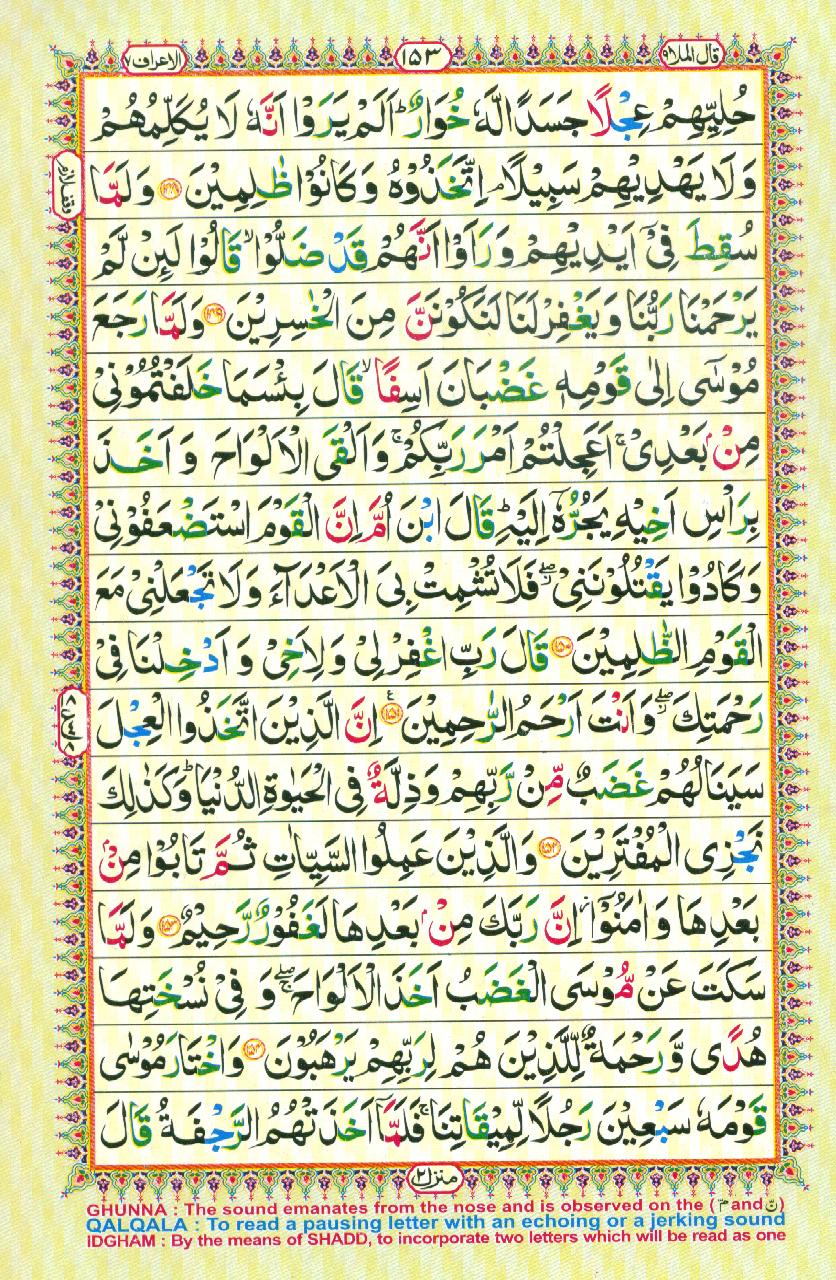 قال الملا ٩
١٥٣
الاعراف ٧
حُلِيِّهِمْ عِجْلًا جَسَدًا لَّهٗ خُوَارٌ ؕ اَلَمْ يَرَوْا اَنَّهٗ لَا يُكَلِّمُهُمْ
وَلَا يَهْدِيْهِمْ سَبِيْلًا ۘ اِتَّخَذُوْهُ وَكَانُوْا ظٰلِمِيْنَ ﴿۱۴۸﴾ وَلَمَّا
سُقِطَ فِيْۤ اَيْدِيْهِمْ وَرَاَوْا اَنَّهُمْ قَدْ ضَلُّوْا ۙ قَالُوْا لَئِنْ لَّمْ
يَرْحَمْنَا رَبُّنَا وَيَغْفِرْ لَنَا لَنَكُوْنَنَّ مِنَ الْخٰسِرِيْنَ ﴿۱۴۹﴾ وَلَمَّا رَجَعَ
مُوْسٰۤى اِلٰى قَوْمِهٖ غَضْبَانَ اَسِفًا ۙ قَالَ بِئْسَمَا خَلَفْتُمُوْنِيْ
مِنْۢ بَعْدِيْ ۚ اَعَجِلْتُمْ اَمْرَ رَبِّكُمْ ۚ وَاَلْقَى الْاَلْوَاحَ وَاَخَذَ
بِرَاْسِ اَخِيْهِ يَجُرُّهٗۤ اِلَيْهِ ؕ قَالَ ابْنَ اُمَّ اِنَّ الْقَوْمَ اسْتَضْعَفُوْنِيْ
وَكَادُوْا يَقْتُلُوْنَنِيْ ۖ فَلَا تُشْمِتْ بِيَ الْاَعْدَآءَ وَلَا تَجْعَلْنِيْ مَعَ
الْقَوْمِ الظّٰلِمِيْنَ ﴿۱۵۰﴾ قَالَ رَبِّ اغْفِرْ لِيْ وَلِاَخِيْ وَاَدْخِلْنَا فِيْ
رَحْمَتِكَ ۖ وَاَنْتَ اَرْحَمُ الرّٰحِمِيْنَ ﴿۱۵۱﴾ اِنَّ الَّذِيْنَ اتَّخَذُوا الْعِجْلَ
سَيَنَالُهُمْ غَضَبٌ مِّنْ رَّبِّهِمْ وَذِلَّةٌ فِي الْحَيٰوةِ الدُّنْيَا ؕ وَكَذٰلِكَ
نَجْزِي الْمُفْتَرِيْنَ ﴿۱۵۲﴾ وَالَّذِيْنَ عَمِلُوا السَّيِّاٰتِ ثُمَّ تَابُوْا مِنْۢ
بَعْدِهَا وَاٰمَنُوْۤا ؗ اِنَّ رَبَّكَ مِنْۢ بَعْدِهَا لَغَفُوْرٌ رَّحِيْمٌ ﴿۱۵۳﴾ وَلَمَّا
سَكَتَ عَنْ مُّوْسَى الْغَضَبُ اَخَذَ الْاَلْوَاحَ ۖۚ وَفِيْ نُسْخَتِهَا
هُدًى وَّرَحْمَةٌ لِّلَّذِيْنَ هُمْ لِرَبِّهِمْ يَرْهَبُوْنَ ﴿۱۵۴﴾ وَاخْتَارَ مُوْسٰى
قَوْمَهٗ سَبْعِيْنَ رَجُلًا لِّمِيْقَاتِنَا ۚ فَلَمَّاۤ اَخَذَتْهُمُ الرَّجْفَةُ قَالَ
منزل ٢
GHUNNA : The sound emanates from the nose and is observed on the ( مّ and نّ )
QALQALA : To read a pausing letter with an echoing or a jerking sound
IDGHAM : By the means of SHADD, to incorporate two letters which will be read as one